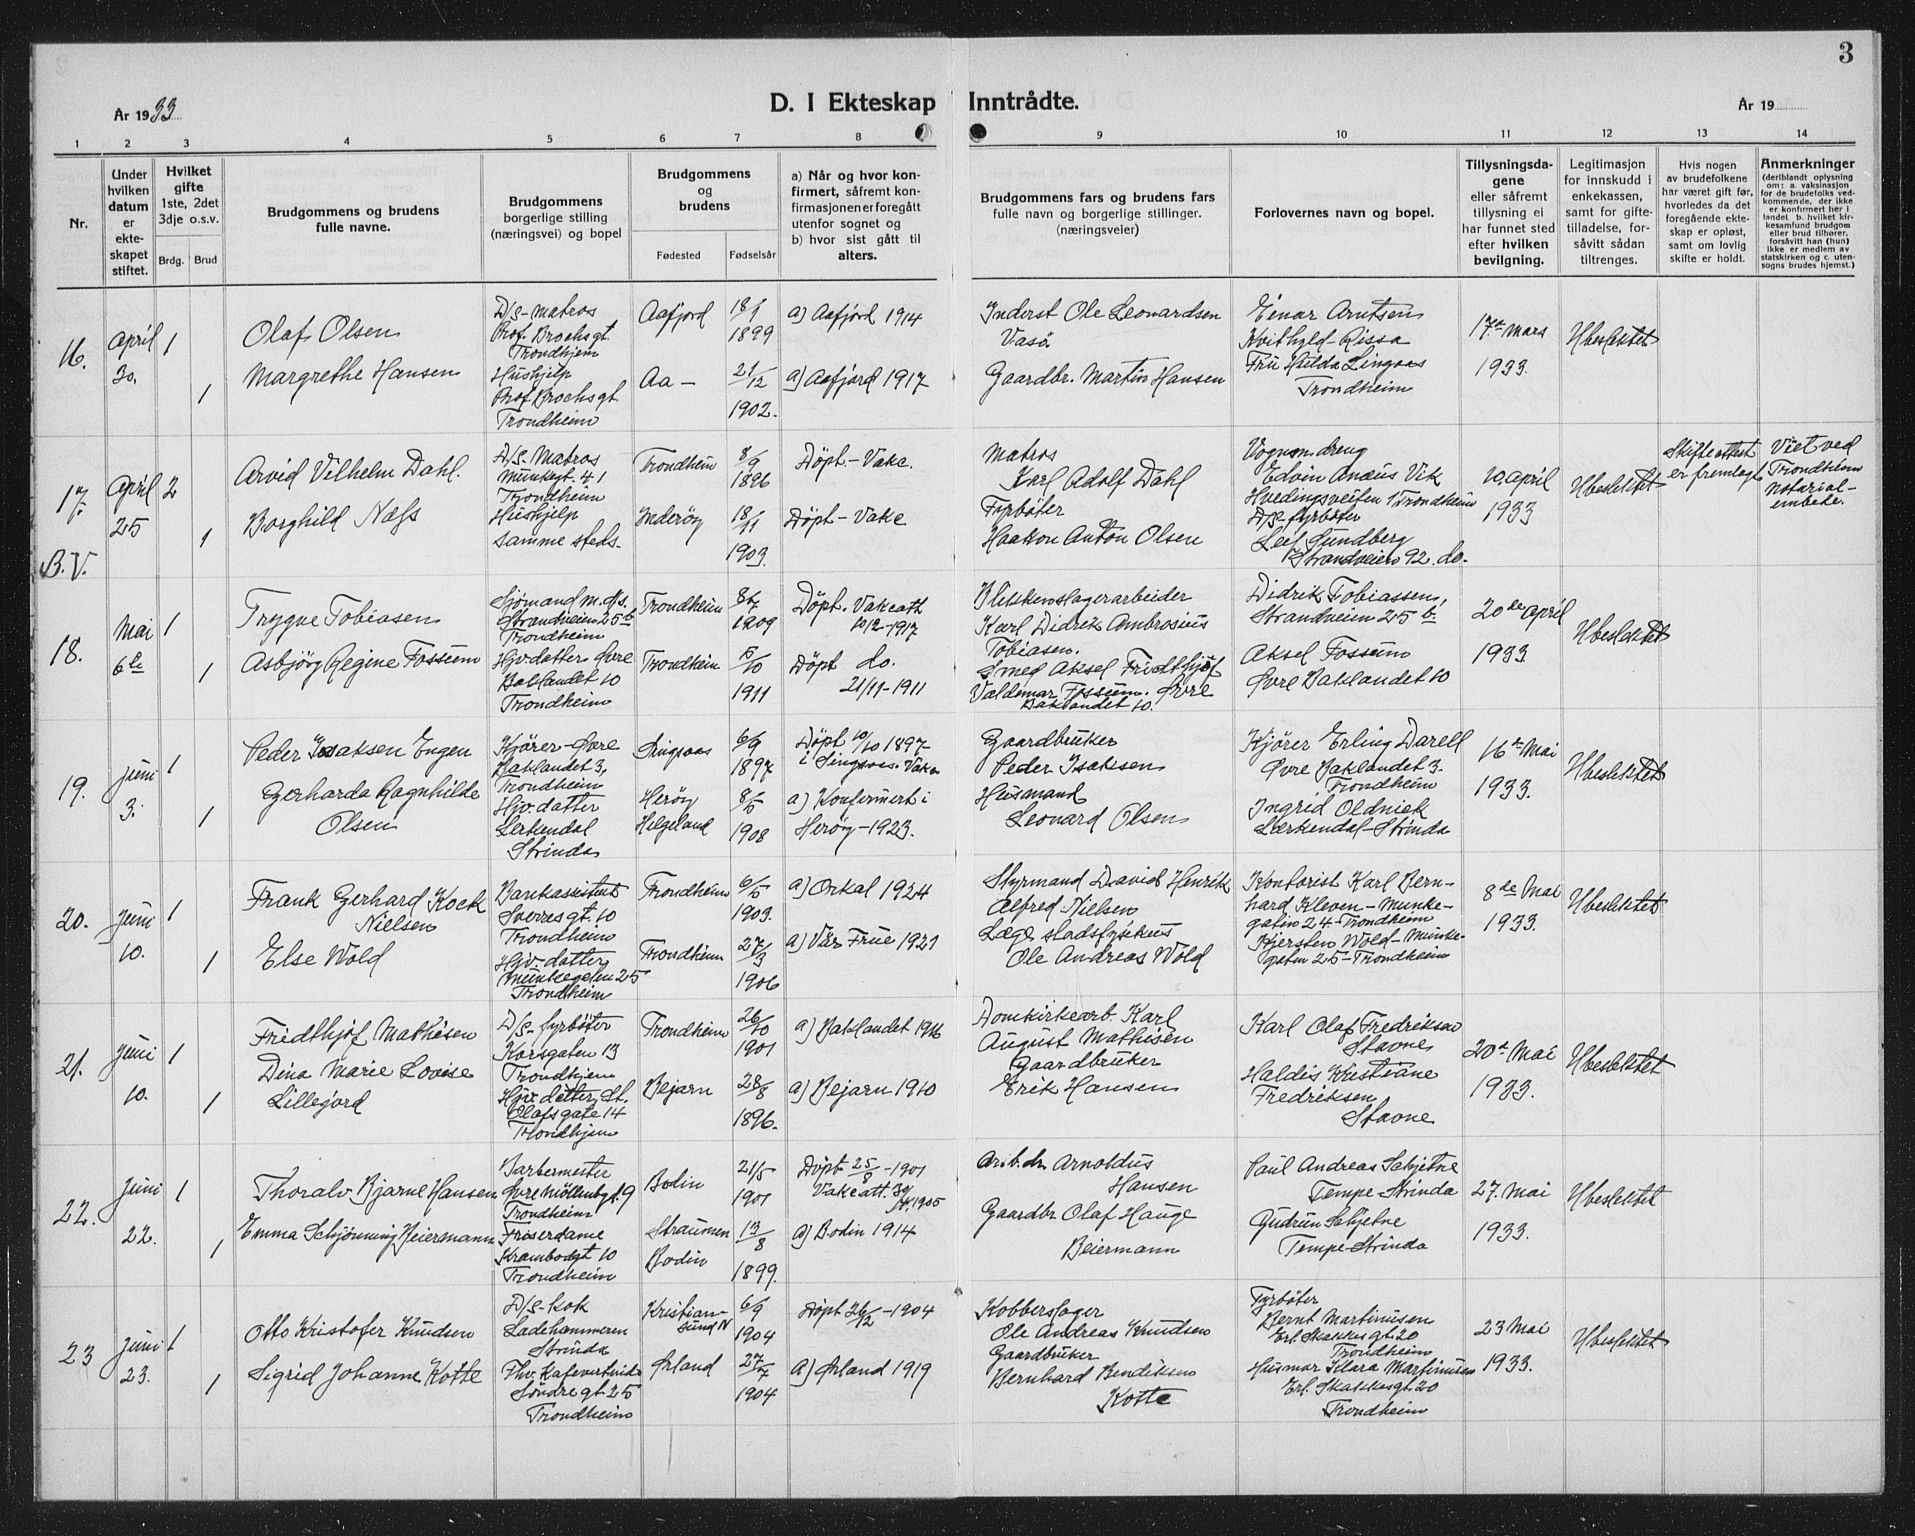 3
År 1933
D. I Ekteskap Inntrådte.
År 19
1 2 3 4 5 6 7 8 9 10 11 12 13 14
Nr.
Under hvilken datum er ekteskapet stiftet.
Hvilket gifte 1ste, 2det 3dje o.s.v.
Brdg. Brud
Brudgommens og brudens fulle navne.
Brudgommens borgerlige stilling (næringsvei) og bopel
Brudgommens og brudens
Fødested Fødselsår
a) Når og hvor konfirmert, såfremt konfirmasjonen er foregått utenfor sognet og
b) hvor sist gått til alters.
Brudgommens fars og brudens fars fulle navn og borgerlige stillinger. (næringsveier)
Forlovernes navn og bopel.
Tillysningsdagene eller såfremt tillysning ei har funnet sted efter hvilken bevilgning.
Legitimasjon for innskudd i enkekassen, samt for giftetilladelse, forsåvitt sådan tiltrenges.
Hvis nogen av brudefolkene har været gift før, hvorledes da det foregående ekteskap er opløst, samt om lovlig skifte er holdt.
Anmerkninger (deriblandt oplysning om: a. vaksinasjon for de brudefolks vedkommende, der ikke er konfirmert her i landet b. hvilket kirkesamfund brudgom eller brud tilhører, forsåvitt han (hun) ikke er medlem av statskirken og c. utensogns brudes hjemst.)
16. April 30. 1 1
Olaf Olsen
Margrethe Hansen
D/S-matros
Prof. Brochsgt.
Trondhjem
Hushjelp
Prof. Brochsgt
Trondheim
Aafjord 18/1 1899
Aa — 21/12 1902.
a) Aafjord 1914
a) Aafjord 1917
Inderst Ole Leonardsen
Vasö.
Gaardbr. Martin Hansen
Einar Arntsen
Kvithyld-Rissa
Fru Hilda Lingaas
Trondheim
17de mars
1933.
Ubeslektet
17. B.V. April 25 2 1
Arvid Vilhelm Dahl.
Borghild Næss
D/S-Matros
Munkegt. 41
Trondheim
Hushjelp
samme steds.
Trondheim 8/9 1896
Inderöy 18/11 1903.
Döpt - Vakc.
Döpt - Vakc
Matros
Karl Adolf Dahl
Fyrböter
Haakon Anton Olsen
Vognmdreng
Edvin Anæus Vik
Hvedingsveiten 1 Trondheim
D/S-fyrböter
Leif Sundberg
Strandveien 92. do.
10. april
1933
Ubeslektet
Skifteattest
er fremlagt
Viet ved
Trondheim
notarial-
embede.
18. Mai 6te 1 1
Trygve Tobiasen
Asbjörg Regine Fossum
Sjömand m. d/s.
Strandveien 25b
Trondheim
Hjv. datter Øvre
Baklandet 10
Trondheim
Trondheim 8/7 1909
Trondheim 5/10 1911
Döpt. Vakc att
10/2-1917
Döpt do.
21/11-1911
Blikkenslagerarbeider
Karl Didrik Ambrosius
Tobiasen.
Smed Aksel Fridthjof
Valdemar Fossum. Øvre
Baklandet 10.
Didrik Tobiassen,
Strandveien 25b
Aksel Fossum
Øvre Baklandet 10
20de april
1933.
Ubeslektet
19. Juni 3. 1 1
Peder Isaksen Engen
Gerharda Ragnhilde
Olsen
Kjörer - Øvre
Baklandet 3,
Trondheim
Hjv. datter
Lerkendal
Strinda
Singsaas 6/9 1897
Heröy
Helgeland 8/5 1908
Döpt 10/10 1897
i Singsaas. Vakc
a) Konfirmert i
Heröy-1923.
Gaardbruker
Peder Isaksen
Husmand
Leonard Olsen
Kjörer Erling Darell
Øvre Baklandet 3.
Trondheim
Ingrid Oldnick
Lærkendal-Strinda
16de Mai
1933.
Ubeslektet
20. Juni 10. 1 1
Frank Gerhard Kock
Nielsen
Else Wold
Bankassistent
Sverresgt. 10
Trondheim
Hjv. datter
Munkegaten 25
Trondheim
Trondheim 6/5 1903.
Trondheim 27/3 1906
a) Orkdal 1924
a) Vår Frue 1921
Styrmand David Henrik
Alfred Nielsen
Læge stadsfysikus
Ole Andreas Wold
Kontorist Karl Bern-
hard Kleven - Munke-
gatin 24 - Trondheim
Kjersten Wold - Munke-
gaten 25 - Trondheim
8de Mai
1933.
Ubeslektet
21. Juni 10. 1 1
Fridthjof Mathisen
Dina Marie Lovise
Lillegård
D/S-fyrböter
Korsgaten 13
Trondhjem
Hjv. datter, St.
Olafs gate 14
Trondhjem
Trondheim 26/10 1901
Bejarn 28/8 1896.
a) Baklandet 1916
a) Bejarn 1910
Domkirkearb. Karl
August Mathisen
Gaardbruker
Erik Hansen
Karl Olaf Fredriksen
Stavne
Haldis Kristiane
Fredriksen
Stavne
20de Mai
1933.
Ubeslektet
22. Juni 22. 1 1
Thoralv Bjarne Hansen
Emma Schjönning Beiermann
Barbermester
Øvre Möllenbgt. 9
Trondheim
Friserdame
Krambodgt 10
Trondheim
Bodin 21/5 1901
Straumen
Bodin 13/8 1899.
Döpt 25/8-1901
a) Bodin 1914
Arnoldus
Hansen
Gaardbr Olaf Hauge
Beiermann
Paul Andreas Schjetne
Tempe-Strinda
Gudrun Schjetne
Tempe-Strinda
27. Mai
1933.
Ubeslektet
23 Juni 23. 1 1
Otto Kristofer Knudsen
Sigrid Johanne Kotte
D/S-kok
Ladehammeren
Strinda
Fhv. Kafevertinde
Söndregt. 25
Trondheim
Kristian-
sund N 6/9 1904
Ørland 27/7 1904
Döpt 26/12-1904
a) Ørland 1919
Kobberslager
Ole Andreas Knudsen
Gaardbruker
Bernhard Bendiksen
Kotte
Fyrböter
Bernt Martinusen
Erl. Skakkes gt. 20
Trondheim
Husmor Klara Martinusen
Erl. Skakkesgt. 20
Trondheim
23 Mai
1933.
Ubeslektet